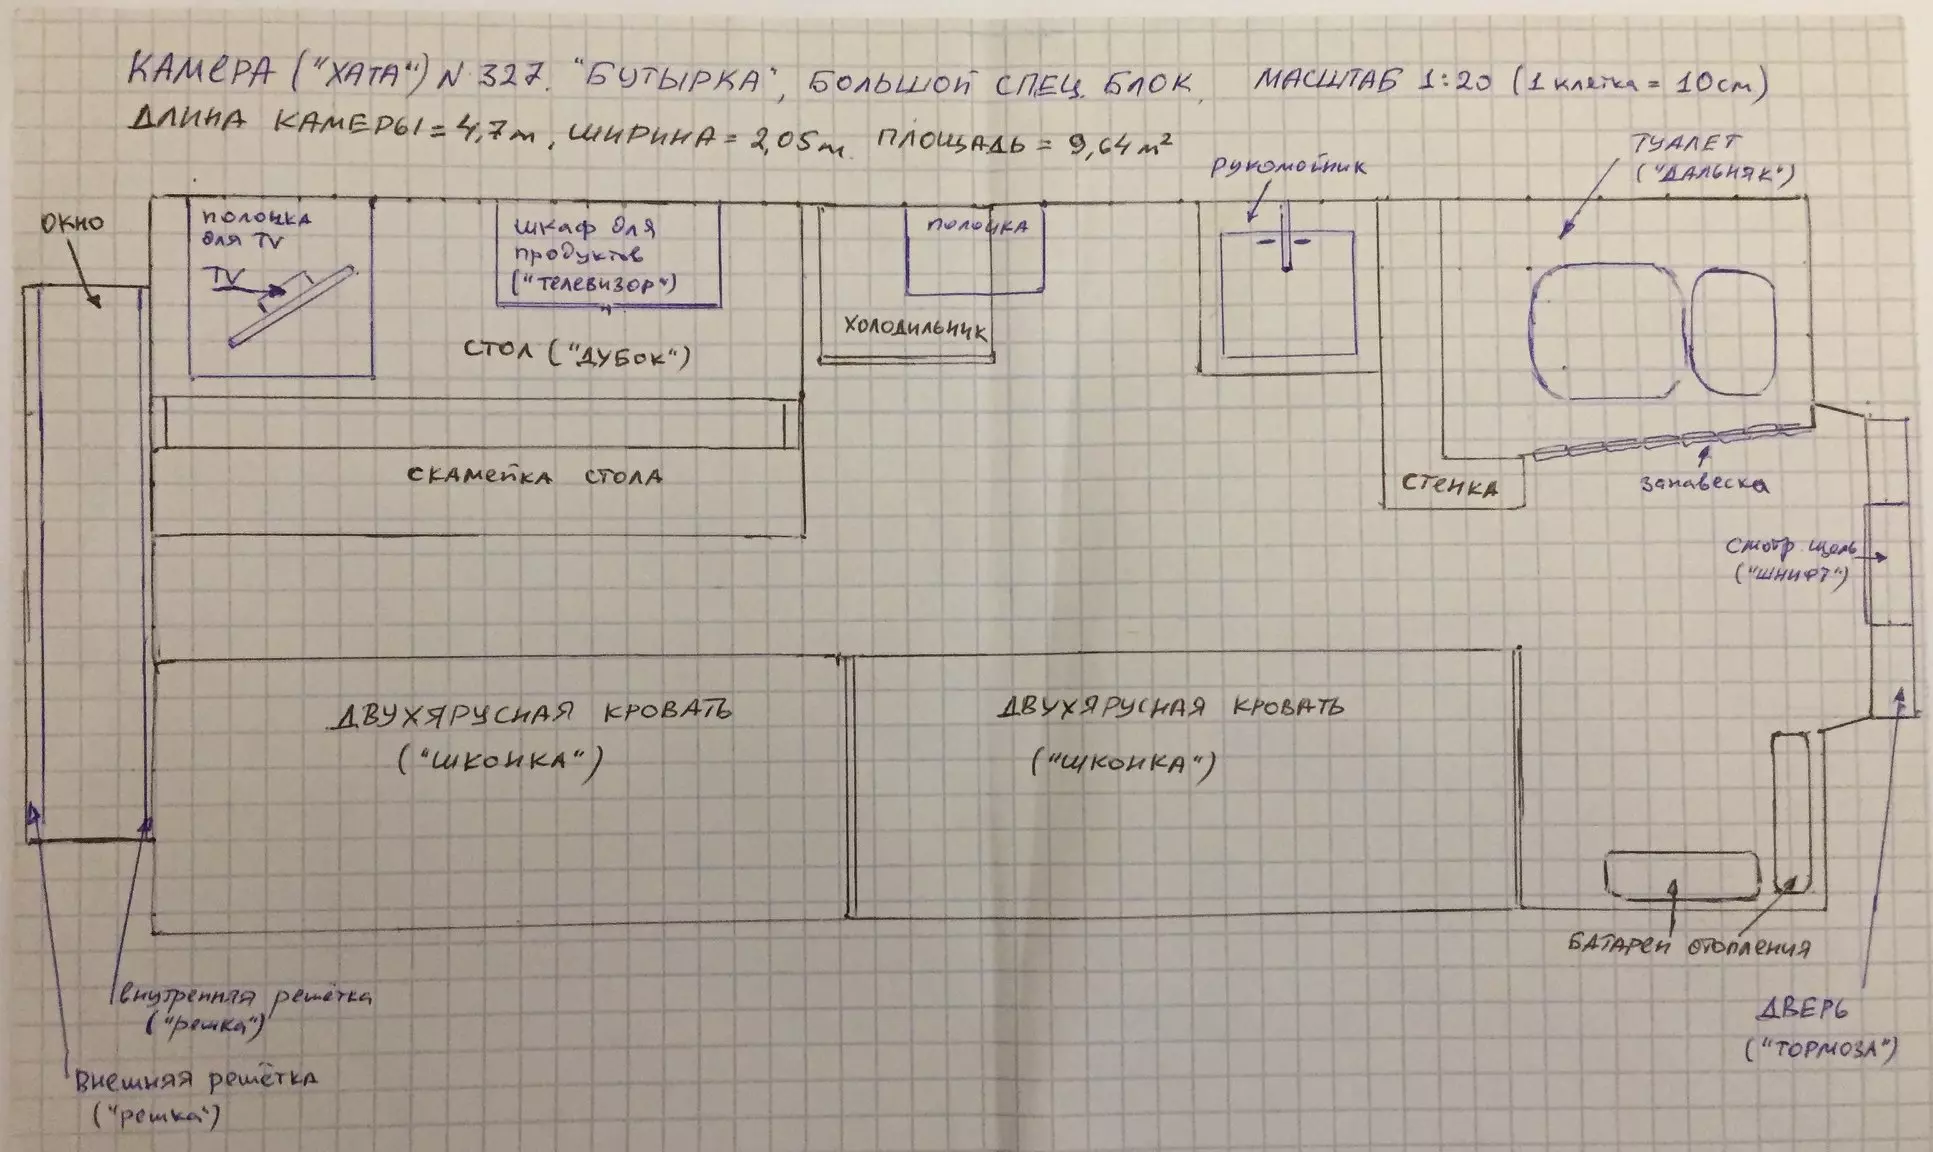 КАМЕРА ("ХАТА") N 327. "БУТЫРКА", БОЛЬШОЙ СПЕЦ. БЛОК, МАСШТАБ 1:20 (1 клетка = 10см)
ДЛИНА КАМЕРЫ = 4,7м, ШИРИНА = 2,05м. ПЛОЩАДЬ = 9,64 м²
РУКОМОЙНИК
ТУАЛЕТ
("ДАЛЬНЯК")
ОКНО
ПОЛОЧКА
для TV
TV
шкаф для
продуктов
("ТЕЛЕВИЗОР")
ПОЛОЧКА
ХОЛОДИЛЬНИК
СТОЛ ("ДУБОК")
СКАМЕЙКА СТОЛА
СТЕНКА
занавеска
Смотр. щель
("ШНИФТ")
ДВУХЯРУСНАЯ КРОВАТЬ
("ШКОНКА")
ДВУХЯРУСНАЯ КРОВАТЬ
("ШКОНКА")
БАТАРЕИ ОТОПЛЕНИЯ
внутренняя решётка
("решка")
ДВЕРЬ
("ТОРМОЗА")
Внешняя решётка
("решка")